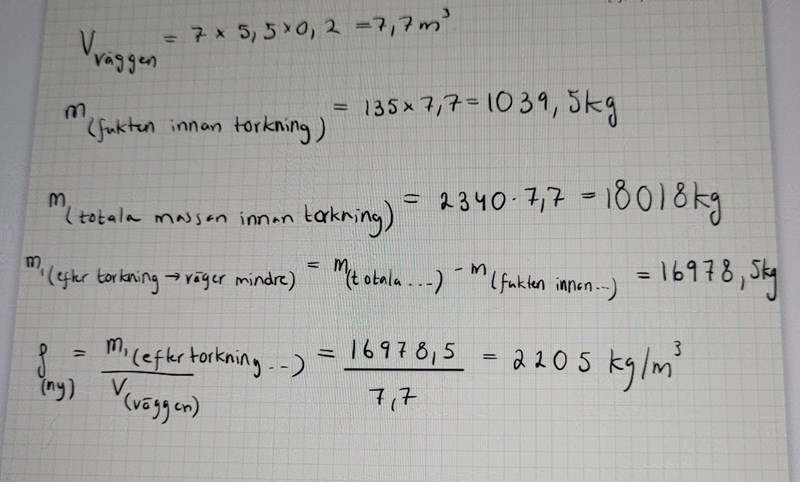 V väggen = 7 × 5,5 × 0,2 = 7,7 m³
m (fukten innan torkning) = 135 × 7,7 = 1039,5 kg
m (totala massan innan torkning) = 2340 · 7,7 = 18018 kg
m₁ (efter torkning → väger mindre) = m (totala ...) - m (fukten innan ...) = 16978,5 kg
ρ (ny) = m₁ (efter torkning ...) / V (väggen) = 16978,5 / 7,7 = 2205 kg/m³